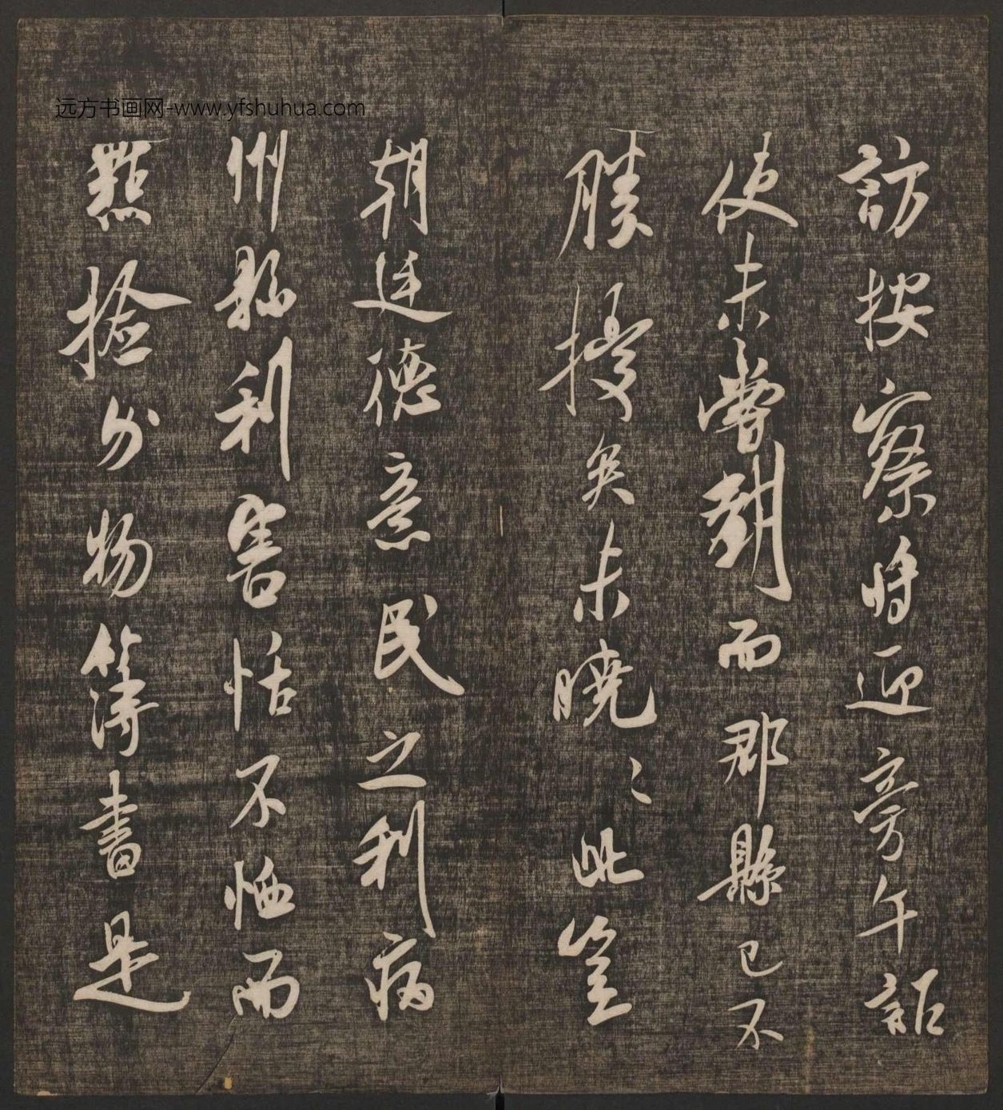 远方书画网-www.yfshuhua.com
訪按察時迎旁午詎
使未嘗到而郡縣已不
勝擾矣未曉〻此豈
朝廷德意民之利病
州縣利害恬不恤而
點撿分物簿書是